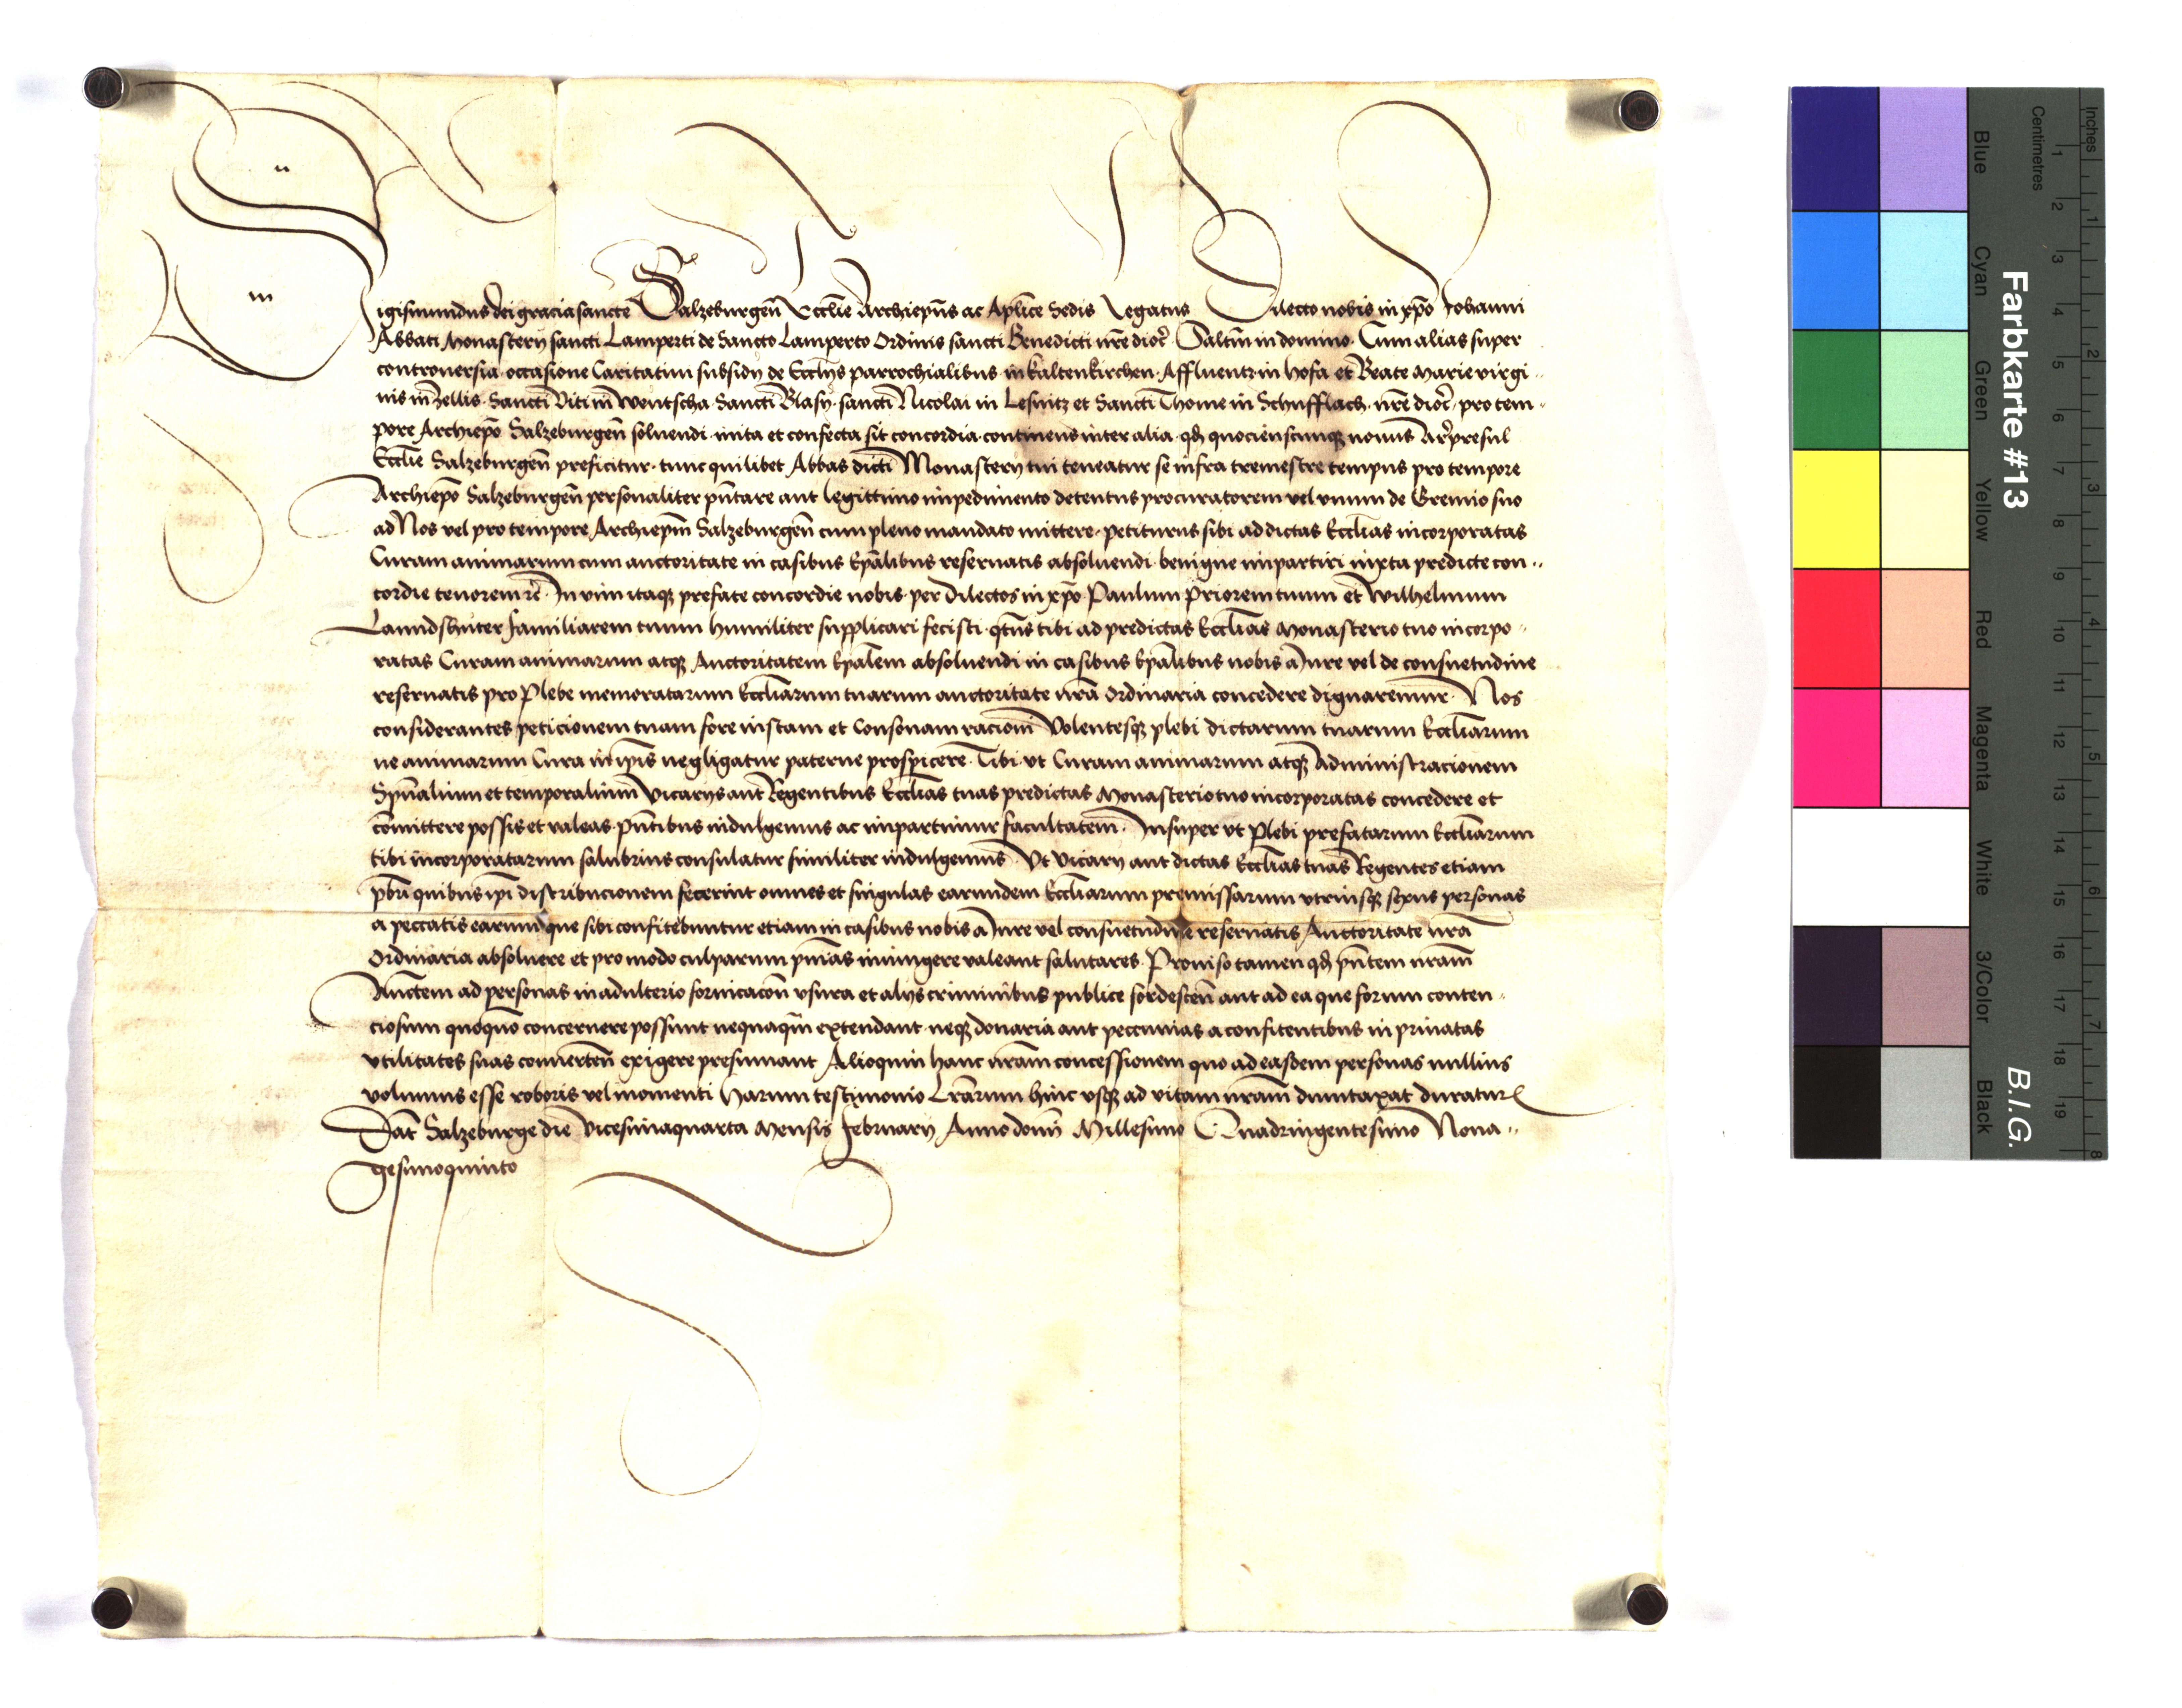 Sigismundus dei gracia sancte Salzeburgeñ Ecclie Archiepus ac Aplice Sedis Legatus Dilecto nobis in xpo Johanni
Abbati Monasterij sancti Lamperti de Sancto Lamperto Ordinis sancti Benedicti nre dioc. Saltm in domino. Cum alias super
controversia occasione Caritatiui subsidij de Ecclijs parrochialibus in kaltenkirchen. Affluentz in hofa et Beate Marie virgi-
nis in Zellis. Sancti Viti in Wentscha. Sancti Blasij. sancti Nicolai in Lesnitz et Sancti Thome in Schufflach. nre dioc. pro tem-
pore Archiepo Salzeburgeñ soluendi inita et confecta sit concordia continens inter alia. qd quocienscunq nouus Arpresul
Ecclie Salzeburgeñ preficitur. tunc quilibet Abbas dicti Monasterij tui teneatur se infra tremestre tempus pro tempore
Archiepo Salzeburgeñ personaliter pntare aut legittimo impedimento detentus procuratorem vel vnum de Gremio suo
ad Nos vel pro tempore Archiepm Salzeburgeñ cum pleno mandato mittere. petiturus sibi ad dictas Ecclias incorporatas
Curam animarum cum auctoritate in casibus Epalibus reseruatis absoluendi benigne impartiri iuxta predicte con-
cordie tenorem rc. In vim itaq prefate concordie nobis per Dilectos in xpo Paulum Priorem tuum et Wilhelmum
Lanndshuter familiarem tuum humiliter supplicari fecisti. qtus tibi ad predictas Ecclias Monasterio tuo incorpo-
ratas Curam animarum atq Auctoritatem Epalem absoluendi in casibus Epalibus nobis a Jure vel de consuetudine
reseruatis pro Plebe memoratarum Eccliarum tuarum auctoritate nra ordinaria concedere dignaremur. Nos
considerantes peticionem tuam fore iustam et Consonam racioni Volentesq plebi dictarum tuarum Eccliarum
ne animarum Cura in ipis negligatur paterne prospicere. Tibi vt Curam animarum atq Administracionem
Spualium et temporalium Vicarys aut Regentibus Ecclias tuas predictas Monasterio tuo incorporatas concedere et
comittere possis et valeas. pntibus indulgemus ac impartimur facultatem. Insuper vt Plebi prefatarum Eccliarum
tibi incorporatarum salubrius consulatur similiter indulgemus. Vt Vicarij aut dictas Ecclias tuas Regentes etiam
pbri quibus ipi distribucionem fecerint omnes et singulas earundem Eccliarum premissarum vtriusq sexus personas
a peccatis earum que sibi confitebuntur etiam in casibus nobis a Jure vel consuetudine reseruatis Auctoritate nra
Ordinaria absoluere et pro modo culparum pnias iniungere valeant salutares. Prouiso tamen qd pntem nram
Auctem ad personas in adulterio fornicacon vsura et alijs criminibus publice sordesceñ aut ad ea que forum conten-
ciosum quoquo concernere possunt nequaqm extendant neq donaria aut pecunias a confitentibus in priuatas
vtilitates suas conuerteñ exigere presumant Alioquin hanc nram concessionem quo ad easdem personas nullius
volumus esse roboris vel momenti Harum testimonio Lrarum hinc vsq ad vitam nram dumtaxat duratur
Dat Salzeburge die Vicesimaquarta Mensis February Anno domi Millesimo Quadringentesimo Nona-
gesimoquinto
Farbkarte #13
B.I.G.
Inches
Centimetres
1 2 3 4 5 6 7 8
1 2 3 4 5 6 7 8 9 10 11 12 13 14 15 16 17 18 19
Blue Cyan Green Yellow Red Magenta White 3/Color Black